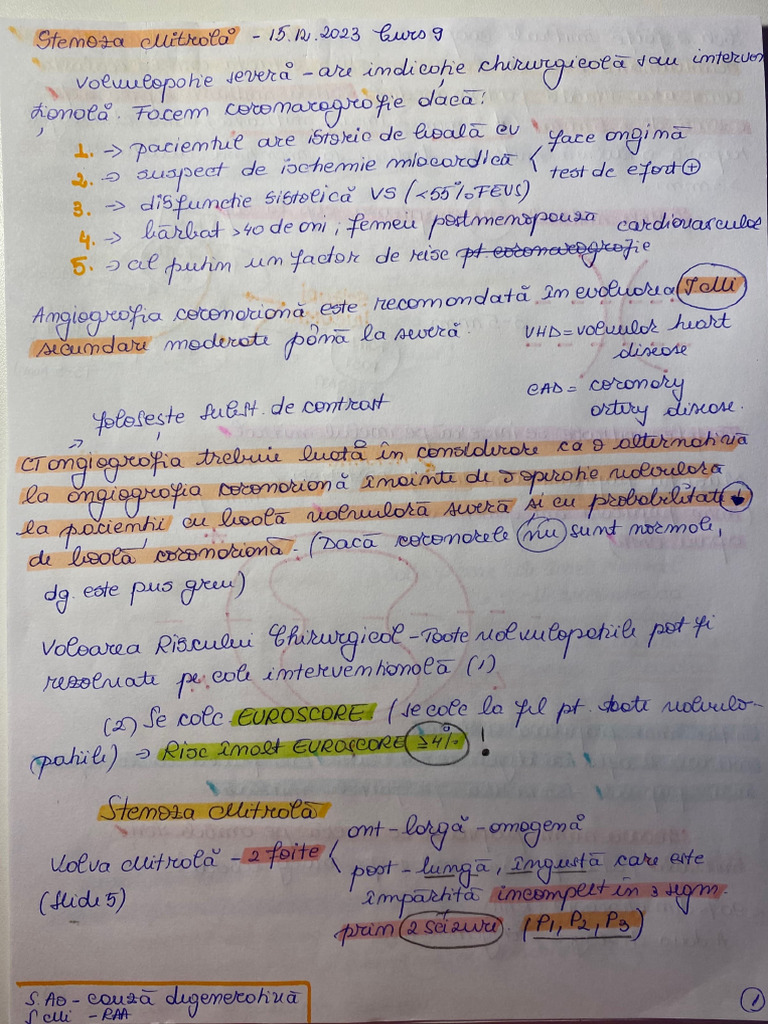 Stenoza Mitrală - 15.12.2023 Curs 9
Valvulopatie severă - are indicație chirurgicală sau interven
țională. Facem coronarografie dacă:
1. → pacientul are istoric de boală CV
2. → suspect de ischemie miocardică < face angină
test de efort ⊕
3. → disfuncție sistolică VS (<55% FEVS)
4. → bărbat >40 de ani, femeu postmenopauza
5. → cel puțin un factor de risc pt coronarografie cardiovascular
Angiografia coronariană este recomandată în evaluarea IMi
secundare moderate până la severă.
VHD = valvular heart
disease
CAD = coronary
artery disease.
→ folosește subst. de contrast
CT angiografia trebuie luată în considerare ca o alternativă
la angiografia coronariană înainte de o operație valvulara
la pacienții cu boală valvulară severă și cu probabilitate ↓
de boală coronariană. (Dacă coronarele nu sunt normale,
dg. este pus greu)
Valoarea Riscului Chirurgical - Toate valvulopatiile pot fi
rezolvate pe cale intervențională (1)
(2) Se calc EUROSCORE (se calc la fel pt. toate valvulo-
patiile) → Risc înalt EUROSCORE ≥4% !
Stenoza Mitrală
Valva Mitrală - 2 foițe < ant - largă - omogenă
(Slide 5)
post - lungă, îngustă care este
împărțită incomplet în 3 segm.
prin 2 scizuri. (P1, P2, P3)
S. Ao - cauză degenerativă
S Mi - RAA
1